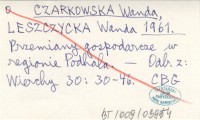 CZARKOWSKA Wanda,
LESZCZYCKA Wanda 1961.
Przemiany gospodarcze w
regionie Podhala. — Odb. z:
Wierchy 30: 30-46. CBG
BT/009/03984